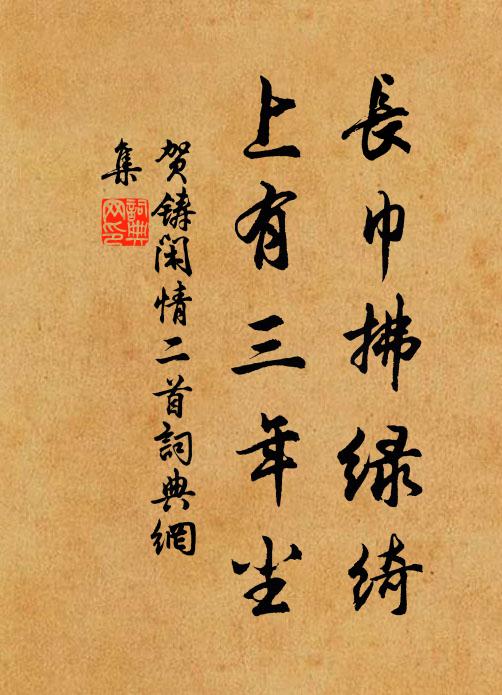 長巾拂绿綺
上有三年尘
贺鑄閑情二首詞典網
集
詞典網印